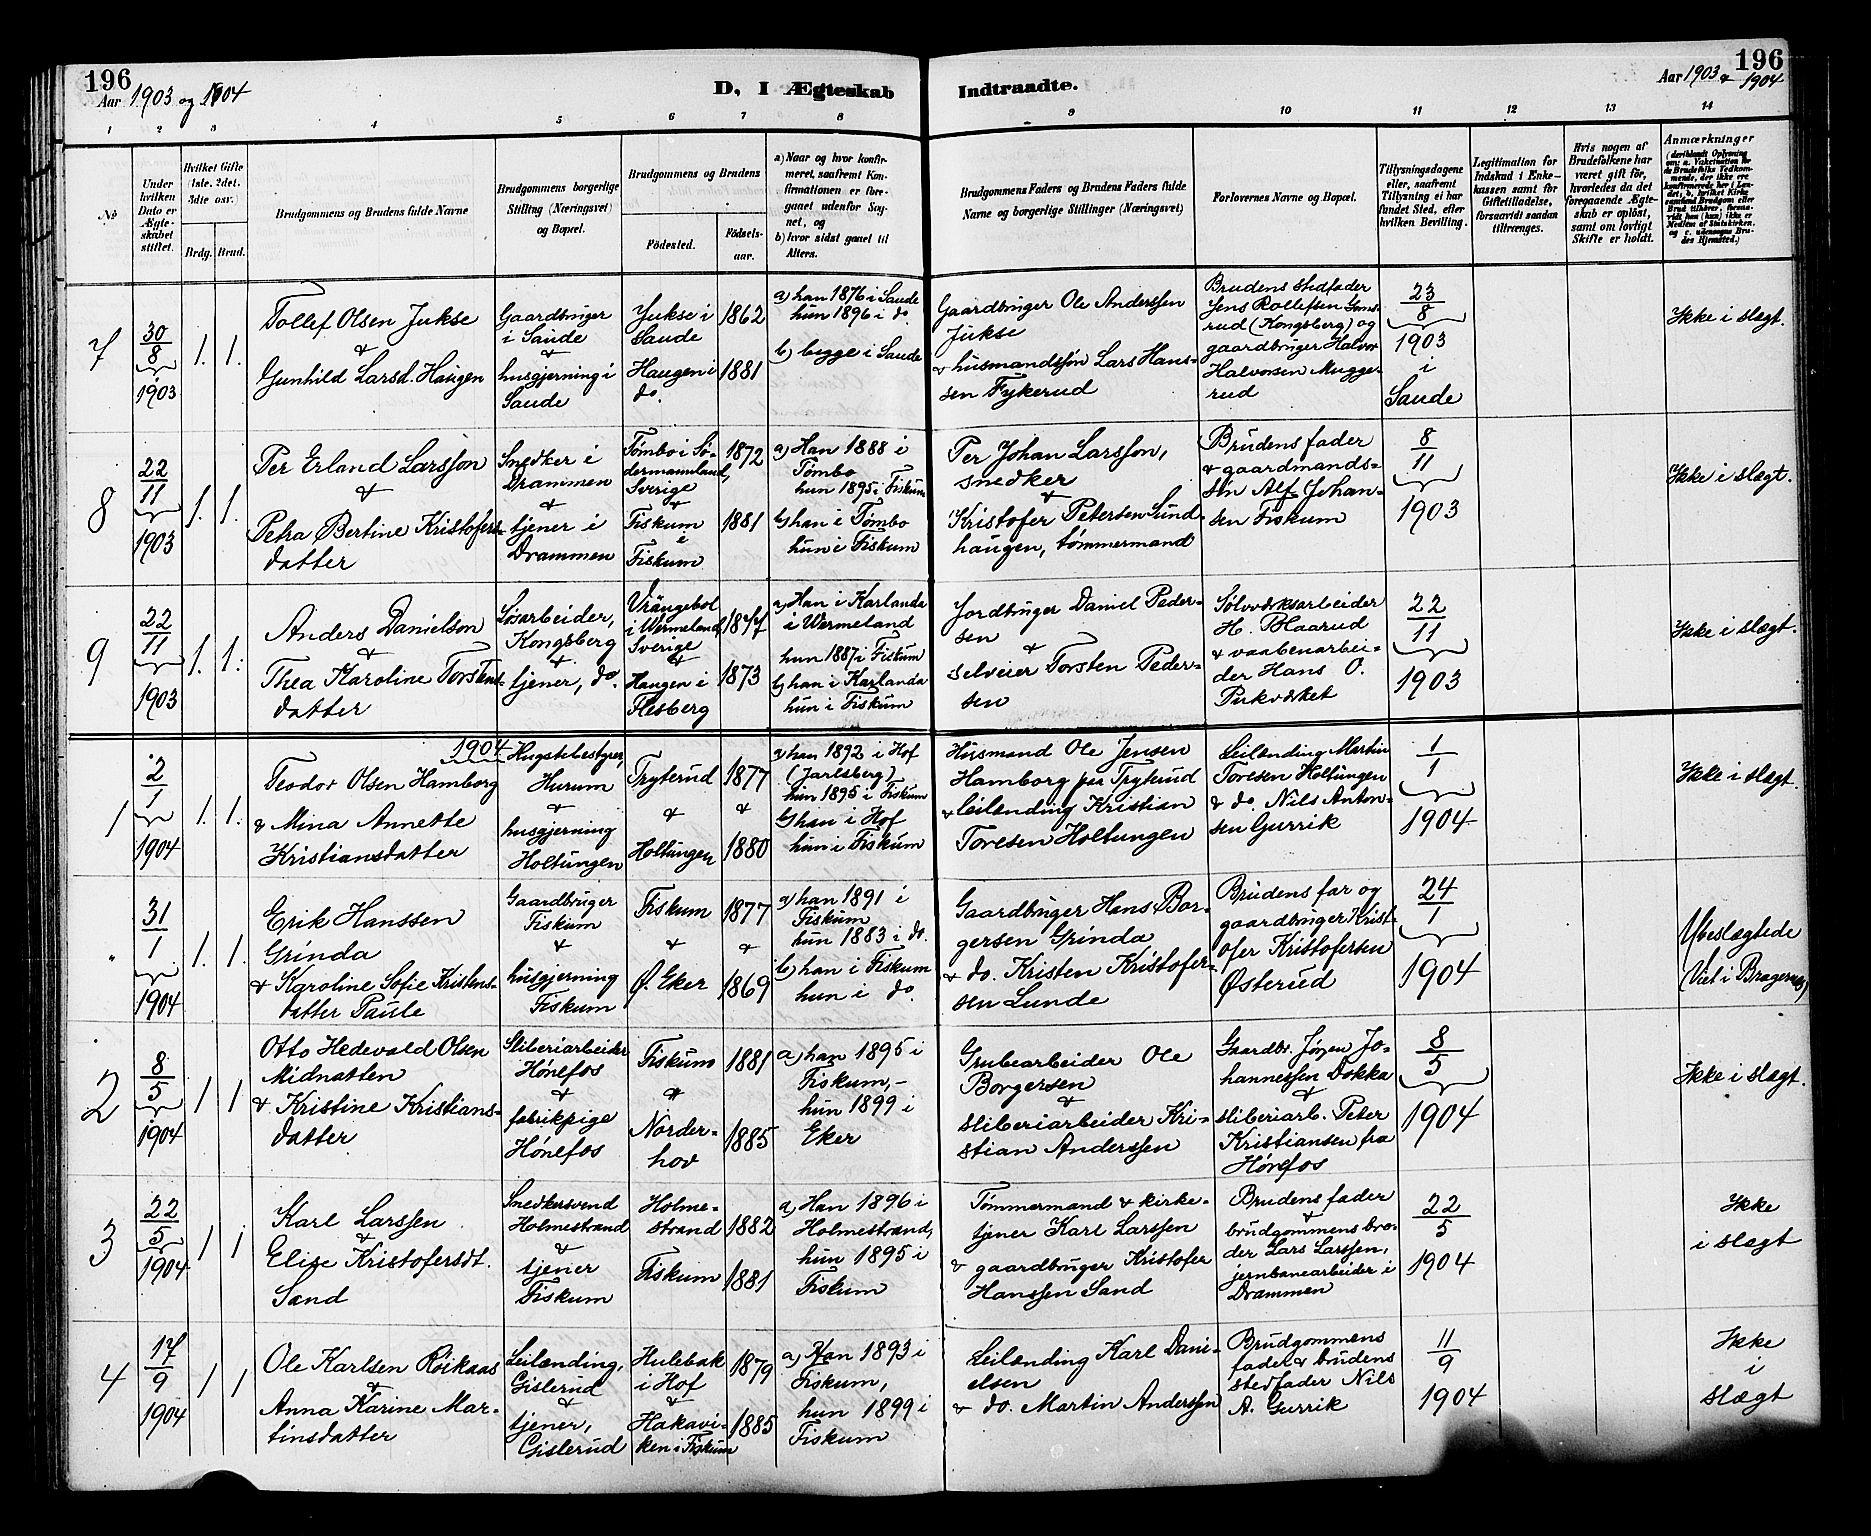 196
Aar 1903 og 1904
D, I Ægteskab
Indtraadte.
196
Aar 1903 & 1904
1 2 3 4 5 6 7 8 9 10 11 12 13 14
No
Under hvilken Dato er Ægteskabet stiftet.
Hvilket Gifte (1ste, 2det, 3die osv.)
Brdg. Brud.
Brudgommens og Brudens fulde Navne
Brudgommens borgerlige Stilling (Næringsvei) og Bopæl.
Brudgommens og Brudens
Födested.
Födselsaar.
a) Naar og hvor konfirmeret, saafremt Konfirmationen er foregaaet udenfor Sognet, og
b) hvor sidst gaaet til Alters.
Brudgommens Faders og Brudens Faders fulde Navne og borgerlige Stillinger (Næringsvei)
Forlovernes Navne og Bopæl.
Tillysningsdagene eller, saafremt Tillysning ei har fundet Sted, efter hvilken Bevilling.
Legitimation for Indskud i Enkekassen samt for Giftetilladelse, forsaavidt saadan tiltrænges.
Hvis nogen af Brudefolkene har været gift för, hvorledes da det foregaaende Ægteskab er oplöst, samt om lovligt Skifte er holdt.
Anmærkninger
7
30/8 1903
1. 1.
Tollef Olsen Jukse
&
Gunhild Larsd. Haugen
Gaardbruger
i Saude
&
husgjerning i
Saude
Jukse i
Saude
Haugen i
do.
1862
1881
a) han 1876 i Saude
hun 1896 i do
b) begge i Saude
Gaardbruger Ole Anderssen
Jukse
& husmandssøn Lars Hans-
sen Fykerud
Brudens stedfader
Jens Rollefsen Gams-
rud (Kongsberg) og
gaardbruger Halvor
Halvorsen Mugge-
rud
23/8
1903
i
Saude
Ikke i slægt.
8
22/11 1903
1. 1.
Per Erland Larsson
&
Petra Bertine Kristofers-
datter
Snedker i
Drammen
&
tjener i
Drammen
Tømbo i Sö-
dermannland,
Sverige
&
Fiskum
i
Fiskum
1872
1881
a) Han 1888 i
Tømbo
hun 1895 i Fiskum
b) han i Tømbo
hun i Fiskum
Per Johan Larsson,
snedker
&
Kristofer Petersen Sund-
haugen, tømmermand
Brudens fader
& gaardmands-
søn Alf Johan-
sen Fiskum
8/11
1903
Ikke i slægt.
9
22/11 1903
1. 1.
Anders Danielson
&
Thea Karoline Torstens-
datter
Løsarbeider,
Kongsberg
&
tjener, do.
Vrängebol
i Wermeland,
Sverige
&
Haugen i
Flesberg
1877
1873
a) Han i Karlanda
i Wermeland
hun 1887 i Fiskum
b) han i Karlanda
hun i Fiskum
Jordbruger Daniel Peder-
sen
&
selveier Torsten Peder-
sen
Sølvværksarbeider
H. Blaarud
& vaabenarbei-
der Hans O.
Pukverket
22/11
1903
Ikke i slægt.
1904
1
2/1 1904
1. 1.
Teodor Olsen Hamborg
& Mina Annette
Kristiansdatter
Hugstbestyrer,
Hurum
&
husgjerning
Holtungen
Tryterud
&
Holtungen
1877
&
1880
a) han 1892 i Hof
(Jarlsberg)
hun 1895 i Fiskum
b) han i Hof
hun i Fiskum
Husmand Ole Jensen
Hamborg paa Tryterud
& leilænding Kristian
Toresen Holtungen
Leilænding Martin
Toresen Holtungen
& do. Nils Anton-
sen Gurrik
1/1
1904
Ikke i slægt.
"
31/1 1904
1. 1.
Erik Hanssen
Grinda
& Karoline Sofie Kristens-
datter Paule
Gaardbruger
Fiskum
&
husgjerning
Fiskum
Fiskum
&
Ø. Eker
1877
&
1869
a) han 1891 i
Fiskum
hun 1883 i do.
b) han i Fiskum
hun i do
Gaardbruger Hans Bor-
gersen Grinda
& do. Kristen Kristofer-
sen Lunde
Brudens far og
gaardbruger Krist-
ofer Kristofersen
Østerud
24/1
1904
Ubeslægtede
(Viet i Bragernes)
2
8/5 1904
1 1
Otto Hedevald Olsen
Midnatten
& Kristine Kristians-
datter
Sliberiarbeider
Hønefos
&
fabrikpige
Hønefos
Fiskum
&
Norder-
hov
1881
1885
a) han 1895 i
Fiskum, –
hun 1899 i
Eker
Grubearbeider Ole
Borgersen
&
sliberiarbeider Kri-
stian Anderssen
Gaardbr. Jørgen Jo-
hannessen Dokka
&
sliberiarb. Peter
Kristiansen fra
Hønefos
8/5
1904
Ikke i slægt.
3
22/5 1904
1 1
Karl Larssen
&
Elise Kristofersdt.
Sand
Snedkersvend
Holmestrand
&
tjener
Fiskum
Holme-
strand
Fiskum
1882
1881
a) Han 1896 i
Holmestrand,
hun 1895 i
Fiskum
Tømmermand & kirke-
tjener Karl Larssen
& gaardbruger Kristofer
Hanssen Sand
Brudens fader
&
brudgommens bro-
der Lars Larssen,
jernbanearbeider i
Drammen
22/5
1904
Ikke
i slægt
4
17/9 1904
1 1
Ole Karlsen Røikaas
&
Anna Karine Mar-
tinsdatter
Leilænding,
Gislerud
&
tjener,
Gislerud
Hulebak
i Hof
&
Hakavi-
ken i Fiskum
1879
1885
a) Han 1893 i
Fiskum,
hun 1899 i
Fiskum
Leilænding Karl Dani-
elsen
& do. Martin Anderssen
Brudgommens
fader & brudens
stedfader Nils
A. Gurrik
11/9
1904
Ikke
i
slægt